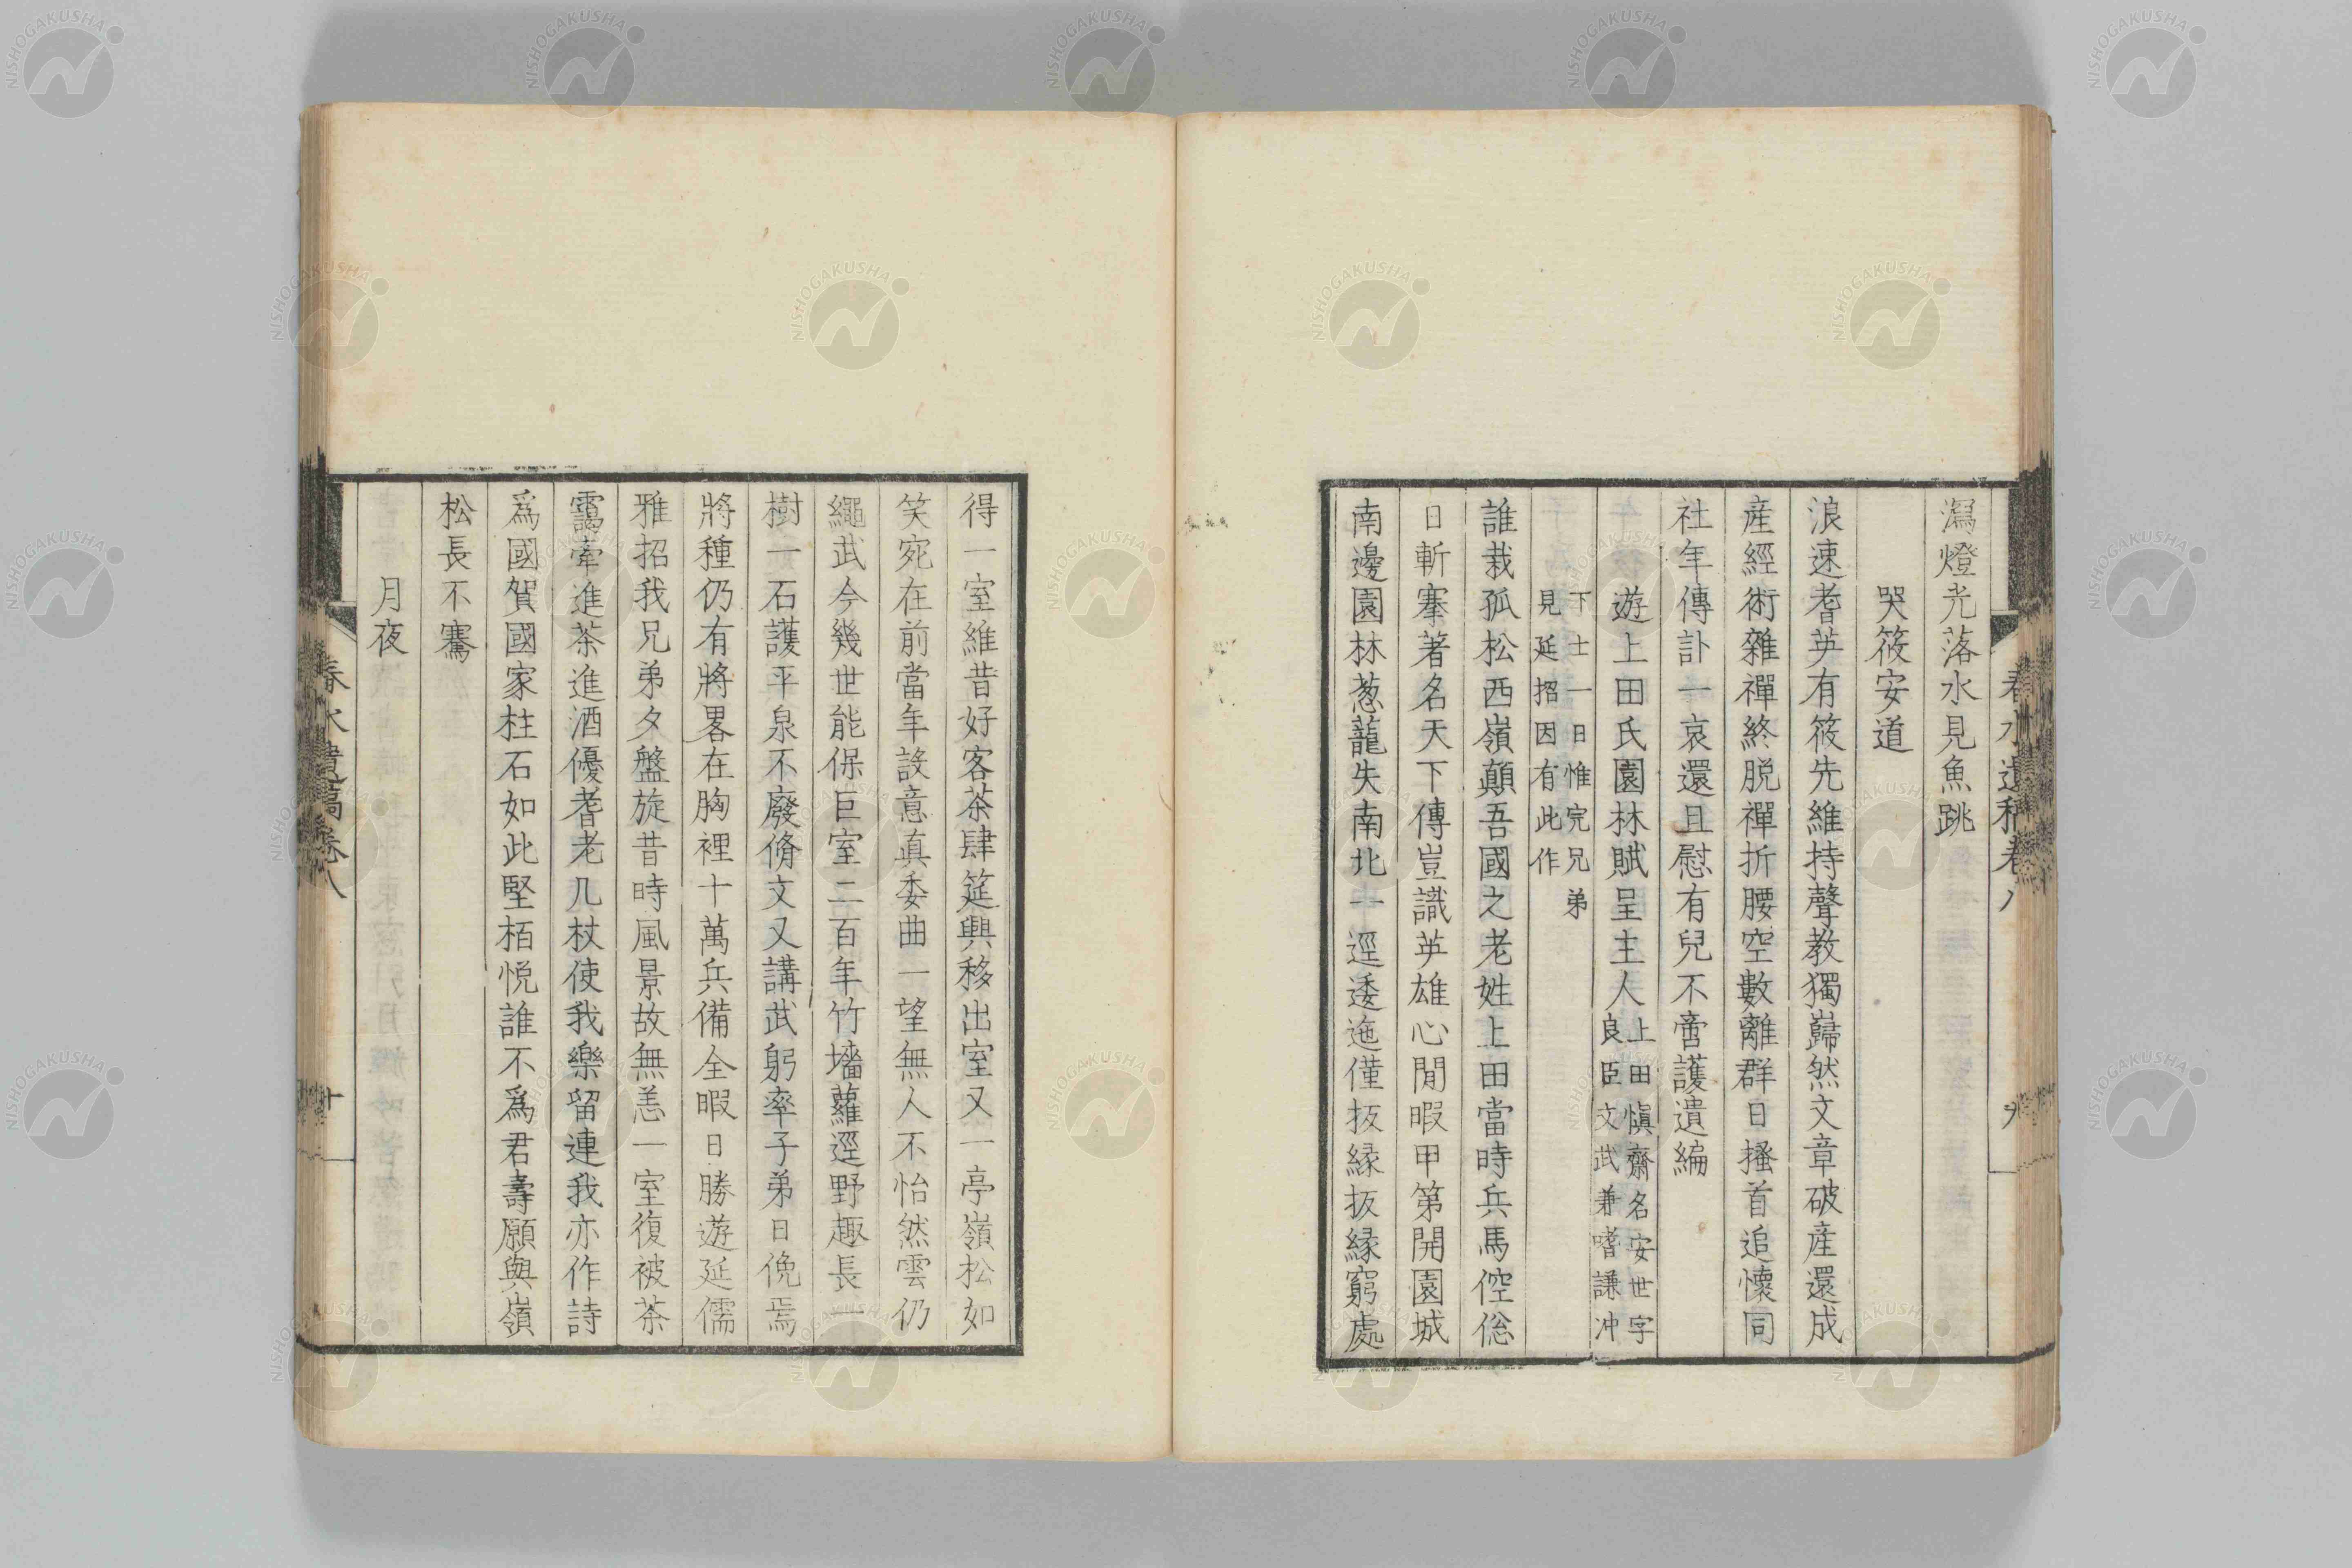 瀉燈光落水見魚跳
哭筱安道
浪速耆英有筱先維持聲教獨巋然文章破産還成
産經術雜禪終脱禪折腰空數離群日搔首追懷同
社年傳訃一哀還且慰有兒不啻護遺編
遊上田氏園林賦呈主人
上田愼齋名安世字
良臣文武兼嗜謙冲
下士一日惟完兄弟
見延招因有此作
誰栽孤松西嶺顛吾國之老姓上田當時兵馬倥傯
日斬搴著名天下傳豈識英雄心閒暇甲第開園城
南邊園林葱蘢失南北一逕逶迤僅扳緣扳緣窮處
春水遺稿卷八
九
得一室維昔好客茶肆筵興移出室又一亭嶺松如
笑宛在前當年設意眞委曲一望無人不怡然雲仍
繩武今幾世能保巨室二百年竹墻蘿逕野趣長一
樹一石護平泉不廢脩文又講武躬率子弟日俛焉
將種仍有將畧在胸裡十萬兵備全暇日勝遊延儒
雅招我兄弟夕盤旋昔時風景故無恙一室復被茶
靄牽進茶進酒優耆老几杖使我樂留連我亦作詩
爲國賀國家柱石如此堅栢悦誰不爲君壽願與嶺
松長不騫
月夜
春水遺稿卷八
十
NISHOGAKUSHA